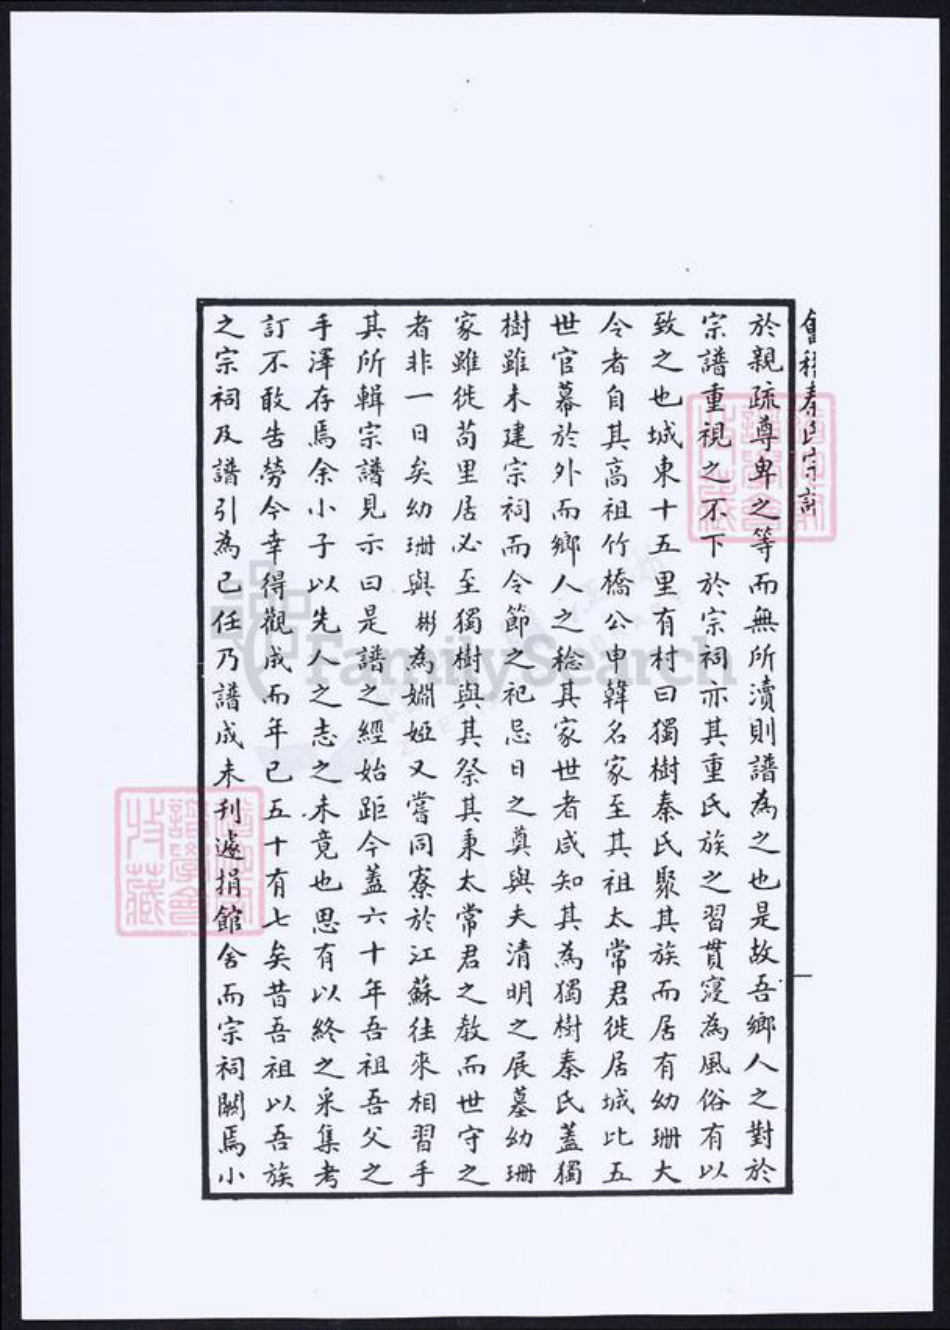 會稽秦氏宗譜
於親疏尊卑之等而無所瀆則譜為之也是故吾鄉人之對於
宗譜重視之不下於宗祠亦其重氏族之習貫寖為風俗有以
致之也城東十五里有村曰獨樹秦氏聚其族而居有幼珊大
令者自其高祖竹橋公申韓名家至其祖太常君徙居城比五
世官幕於外而鄉人之稔其家世者咸知其為獨樹秦氏蓋獨
樹雖未建宗祠而令節之祀忌日之奠與夫清明之展墓幼珊
家雖徙苟里居必至獨樹與其祭其秉太常君之教而世守之
者非一日矣幼珊與彬為婣婭又嘗同寮於江蘇往來相習手
其所輯宗譜見示曰是譜之經始距今蓋六十年吾祖吾父之
手澤存焉余小子以先人之志之未竟也思有以終之采集考
訂不敢告勞今幸得觀成而年已五十有七矣昔吾祖以吾族
之宗祠及譜引為己任乃譜成未刊遽捐館舍而宗祠闕焉小
一
FamilySearch